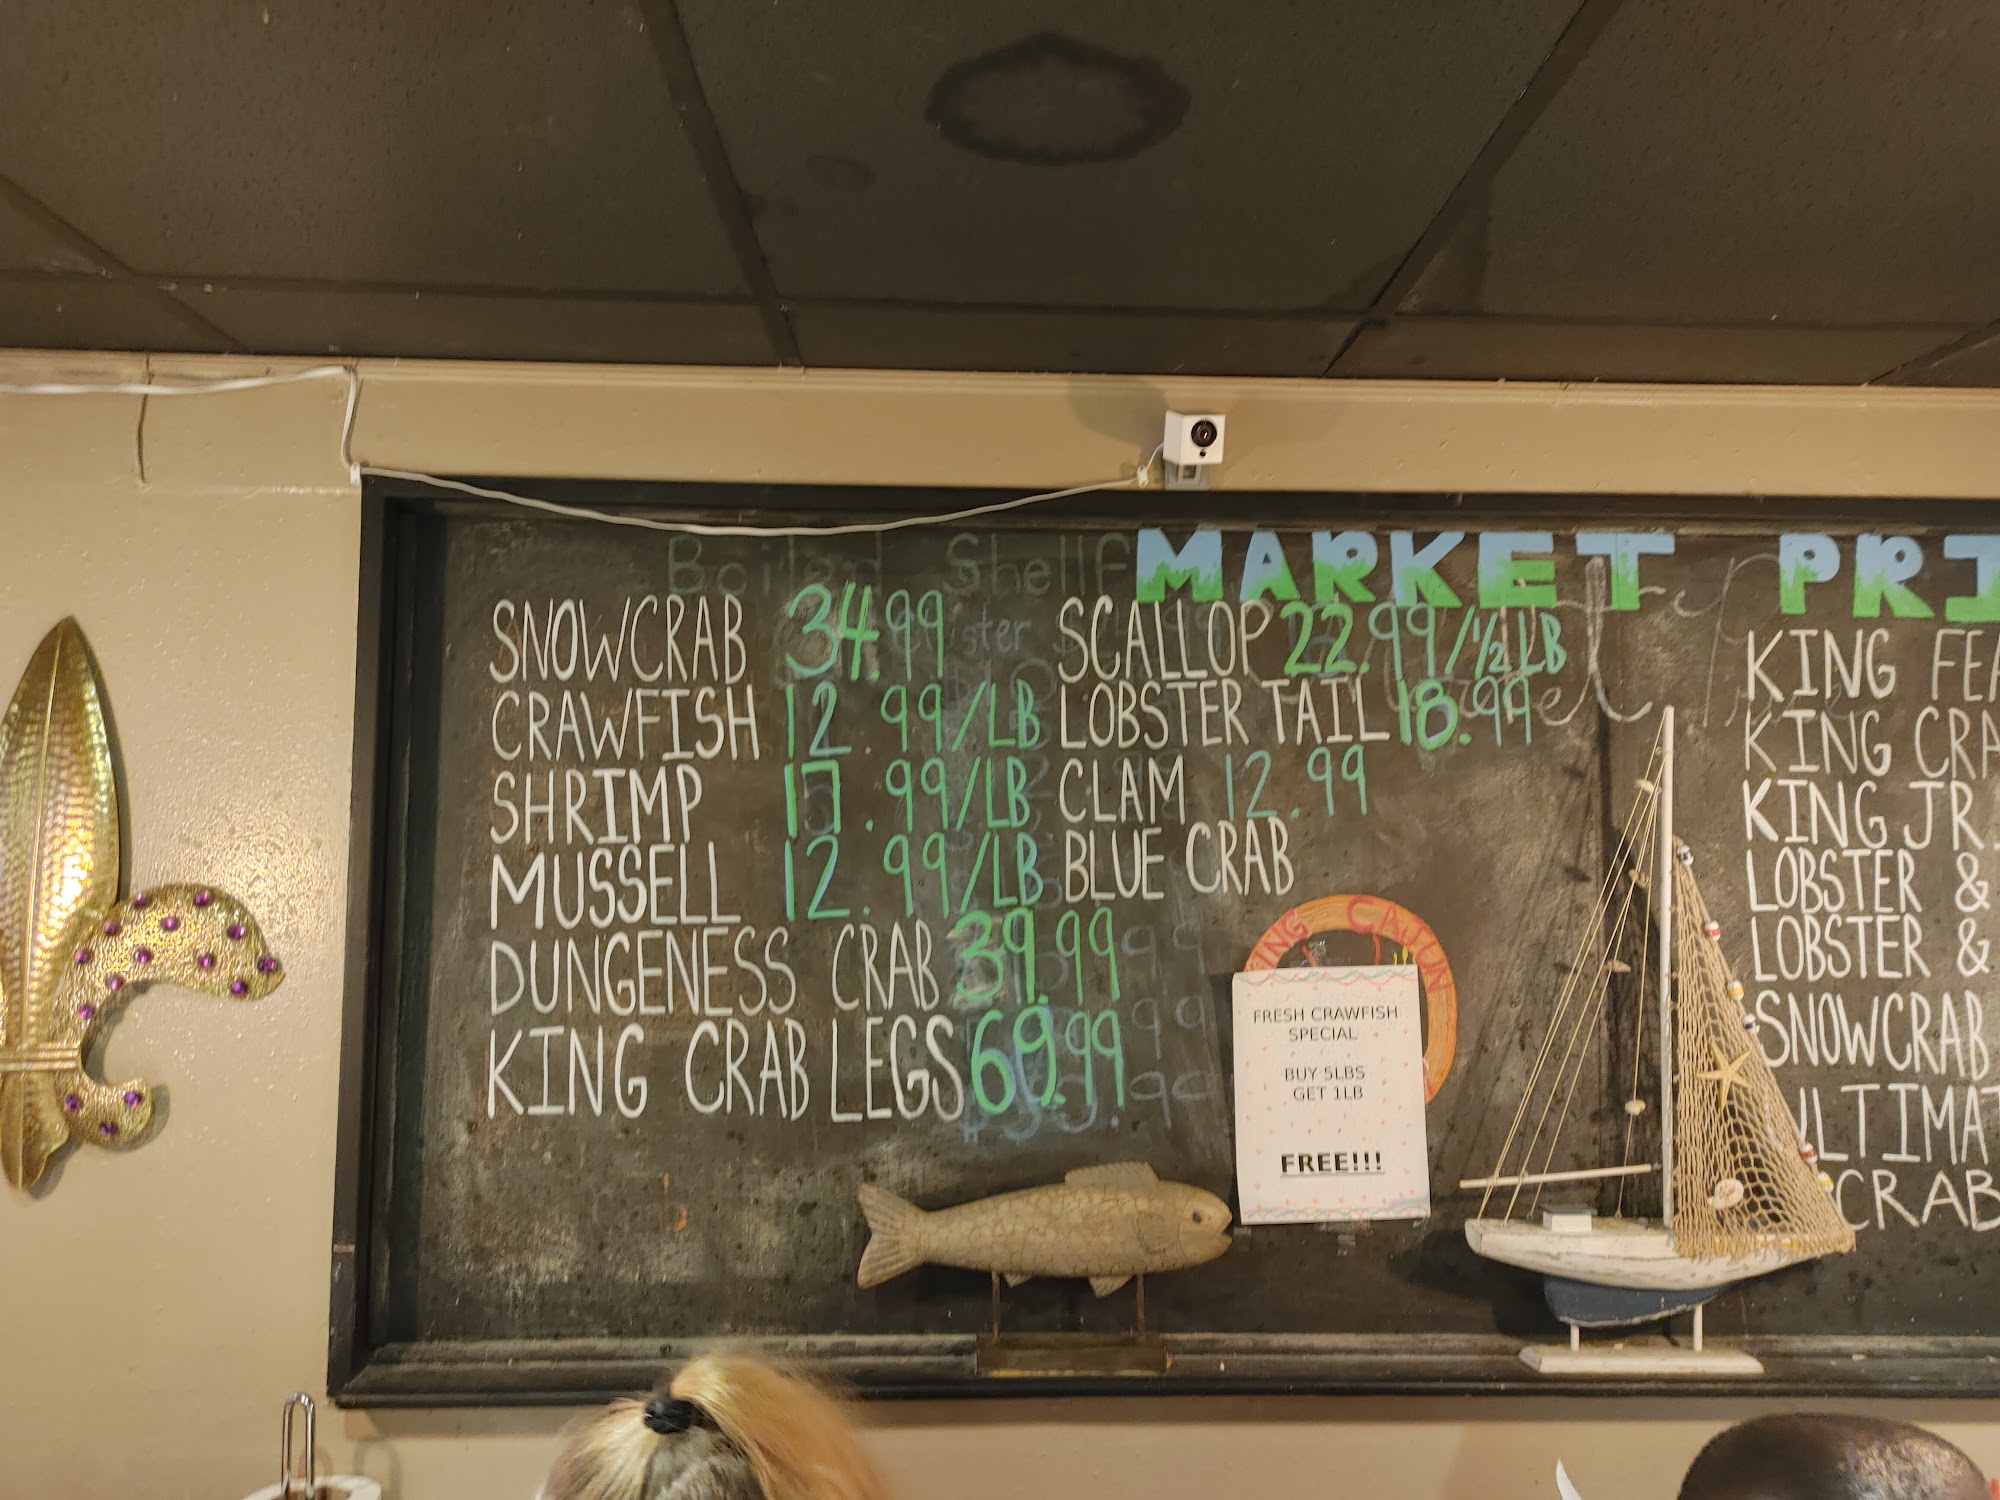 MARKET
SNOWCRAB 34.99
CRAWFISH 12.99/LB
SHRIMP 17.99/LB
MUSSELL 12.99/LB
DUNGENESS CRAB 39.99
KING CRAB LEGS 69.99
SCALLOP 22.99/½ LB
LOBSTER TAIL 18.99
CLAM 12.99
BLUE CRAB
CAJUN
FRESH CRAWFISH
SPECIAL
BUY 5LBS
GET 1LB
FREE!!!
KING
KING
KING JR
LOBSTER &
LOBSTER &
SNOWCRAB
CRAB